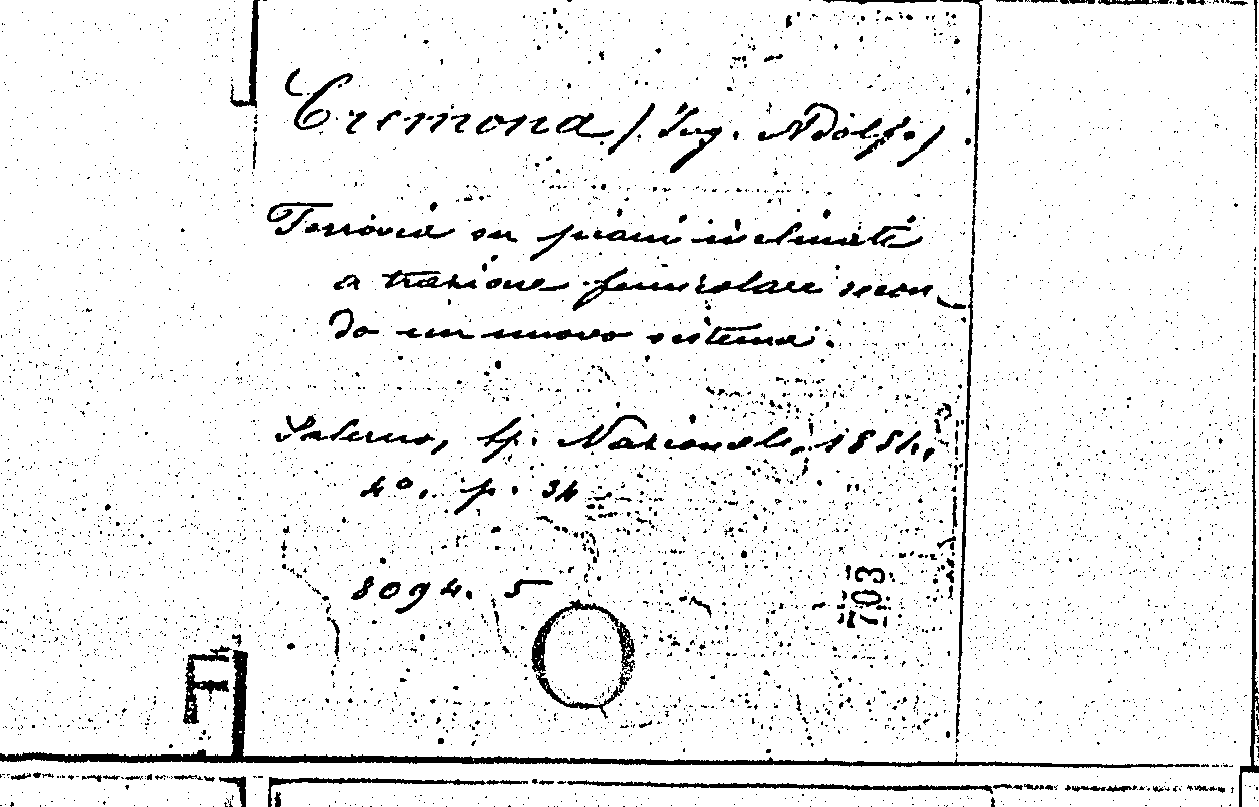 Cremona (Ing. Adolfo)
Ferrovia su piani inclinati
a trazione funicolare secon
do un nuovo sistema.
Salerno, tip. Nazionale, 1884,
4°. p. 34
8094. 5
703
F